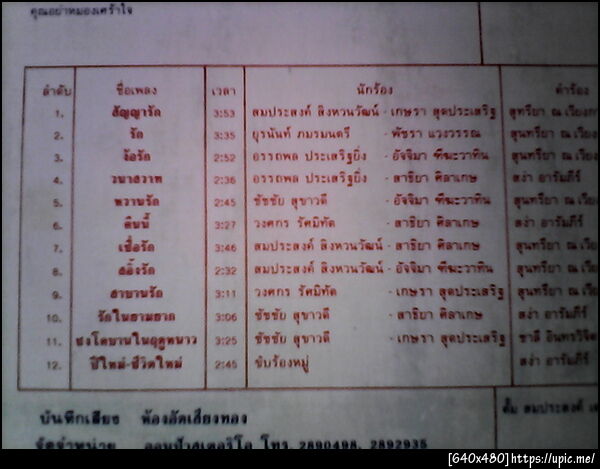 คุณอย่าหมองเศร้าใจ
ลำดับ ชื่อเพลง เวลา นักร้อง คำร้อง
1. สัญญารัก 3:53 สมประสงค์ สิงหวนวัฒน์ - เกษรา สุดประเสริฐ สุทรียา ณ เวียงกา
2. รัก 3:35 ยุรนันท์ ภมรมนตรี - พัชรา แวงวรรณ สุนทรียา ณ เวียงก
3. ง้อรัก 2:52 อรรถพล ประเสริฐยิ่ง - อัจจิมา ฑีฆะวาทิน สุนทรียา ณ เวียงก
4. วนาสวาท 2:36 อรรถพล ประเสริฐยิ่ง - สาธิยา ศิลาเกษ สง่า อารัมภีร์
5. หวานรัก 2:45 ชัชชัย สุขาวดี - อัจจิมา ฑีฆะวาทิน สุนทรียา ณ เวียงก
6. คืนนี้ 3:27 วงศกร รัศมิทัต - สาธิยา ศิลาเกษ สง่า อารัมภีร์
7. เชื่อรัก 3:46 สมประสงค์ สิงหวนวัฒน์ - สาธิยา ศิลาเกษ สุนทรียา ณ เวียง
8. สลิ้งรัก 2:32 สมประสงค์ สิงหวนวัฒน์ - อัจจิมา ฑีฆะวาทิน สุนทรียา ณ เวีย
9. สาบานรัก 3:11 วงศกร รัศมิทัต - เกษรา สุดประเสริฐ สุนทรียา ณ เวีย
10. รักในยามยาก 3:06 ชัชชัย สุขาวดี - สาธิยา ศิลาเกษ สง่า อารัมภีร์
11. ชงโคบานในฤดูหนาว 3:25 ชัชชัย สุขาวดี - เกษรา สุดประเสริฐ ชาลี อินทรวิจิต
12. ปีใหม่-ชีวิตใหม่ 2:45 ขับร้องหมู่ สง่า อารัมภีร์
บันทึกเสียง ห้องอัดเสียงทอง ตั้ม สมประสงค์
จัดจำหน่าย ออนป้าสเตอริโอ โทร. 2890498, 2892935
[640x480]https://upic.me/